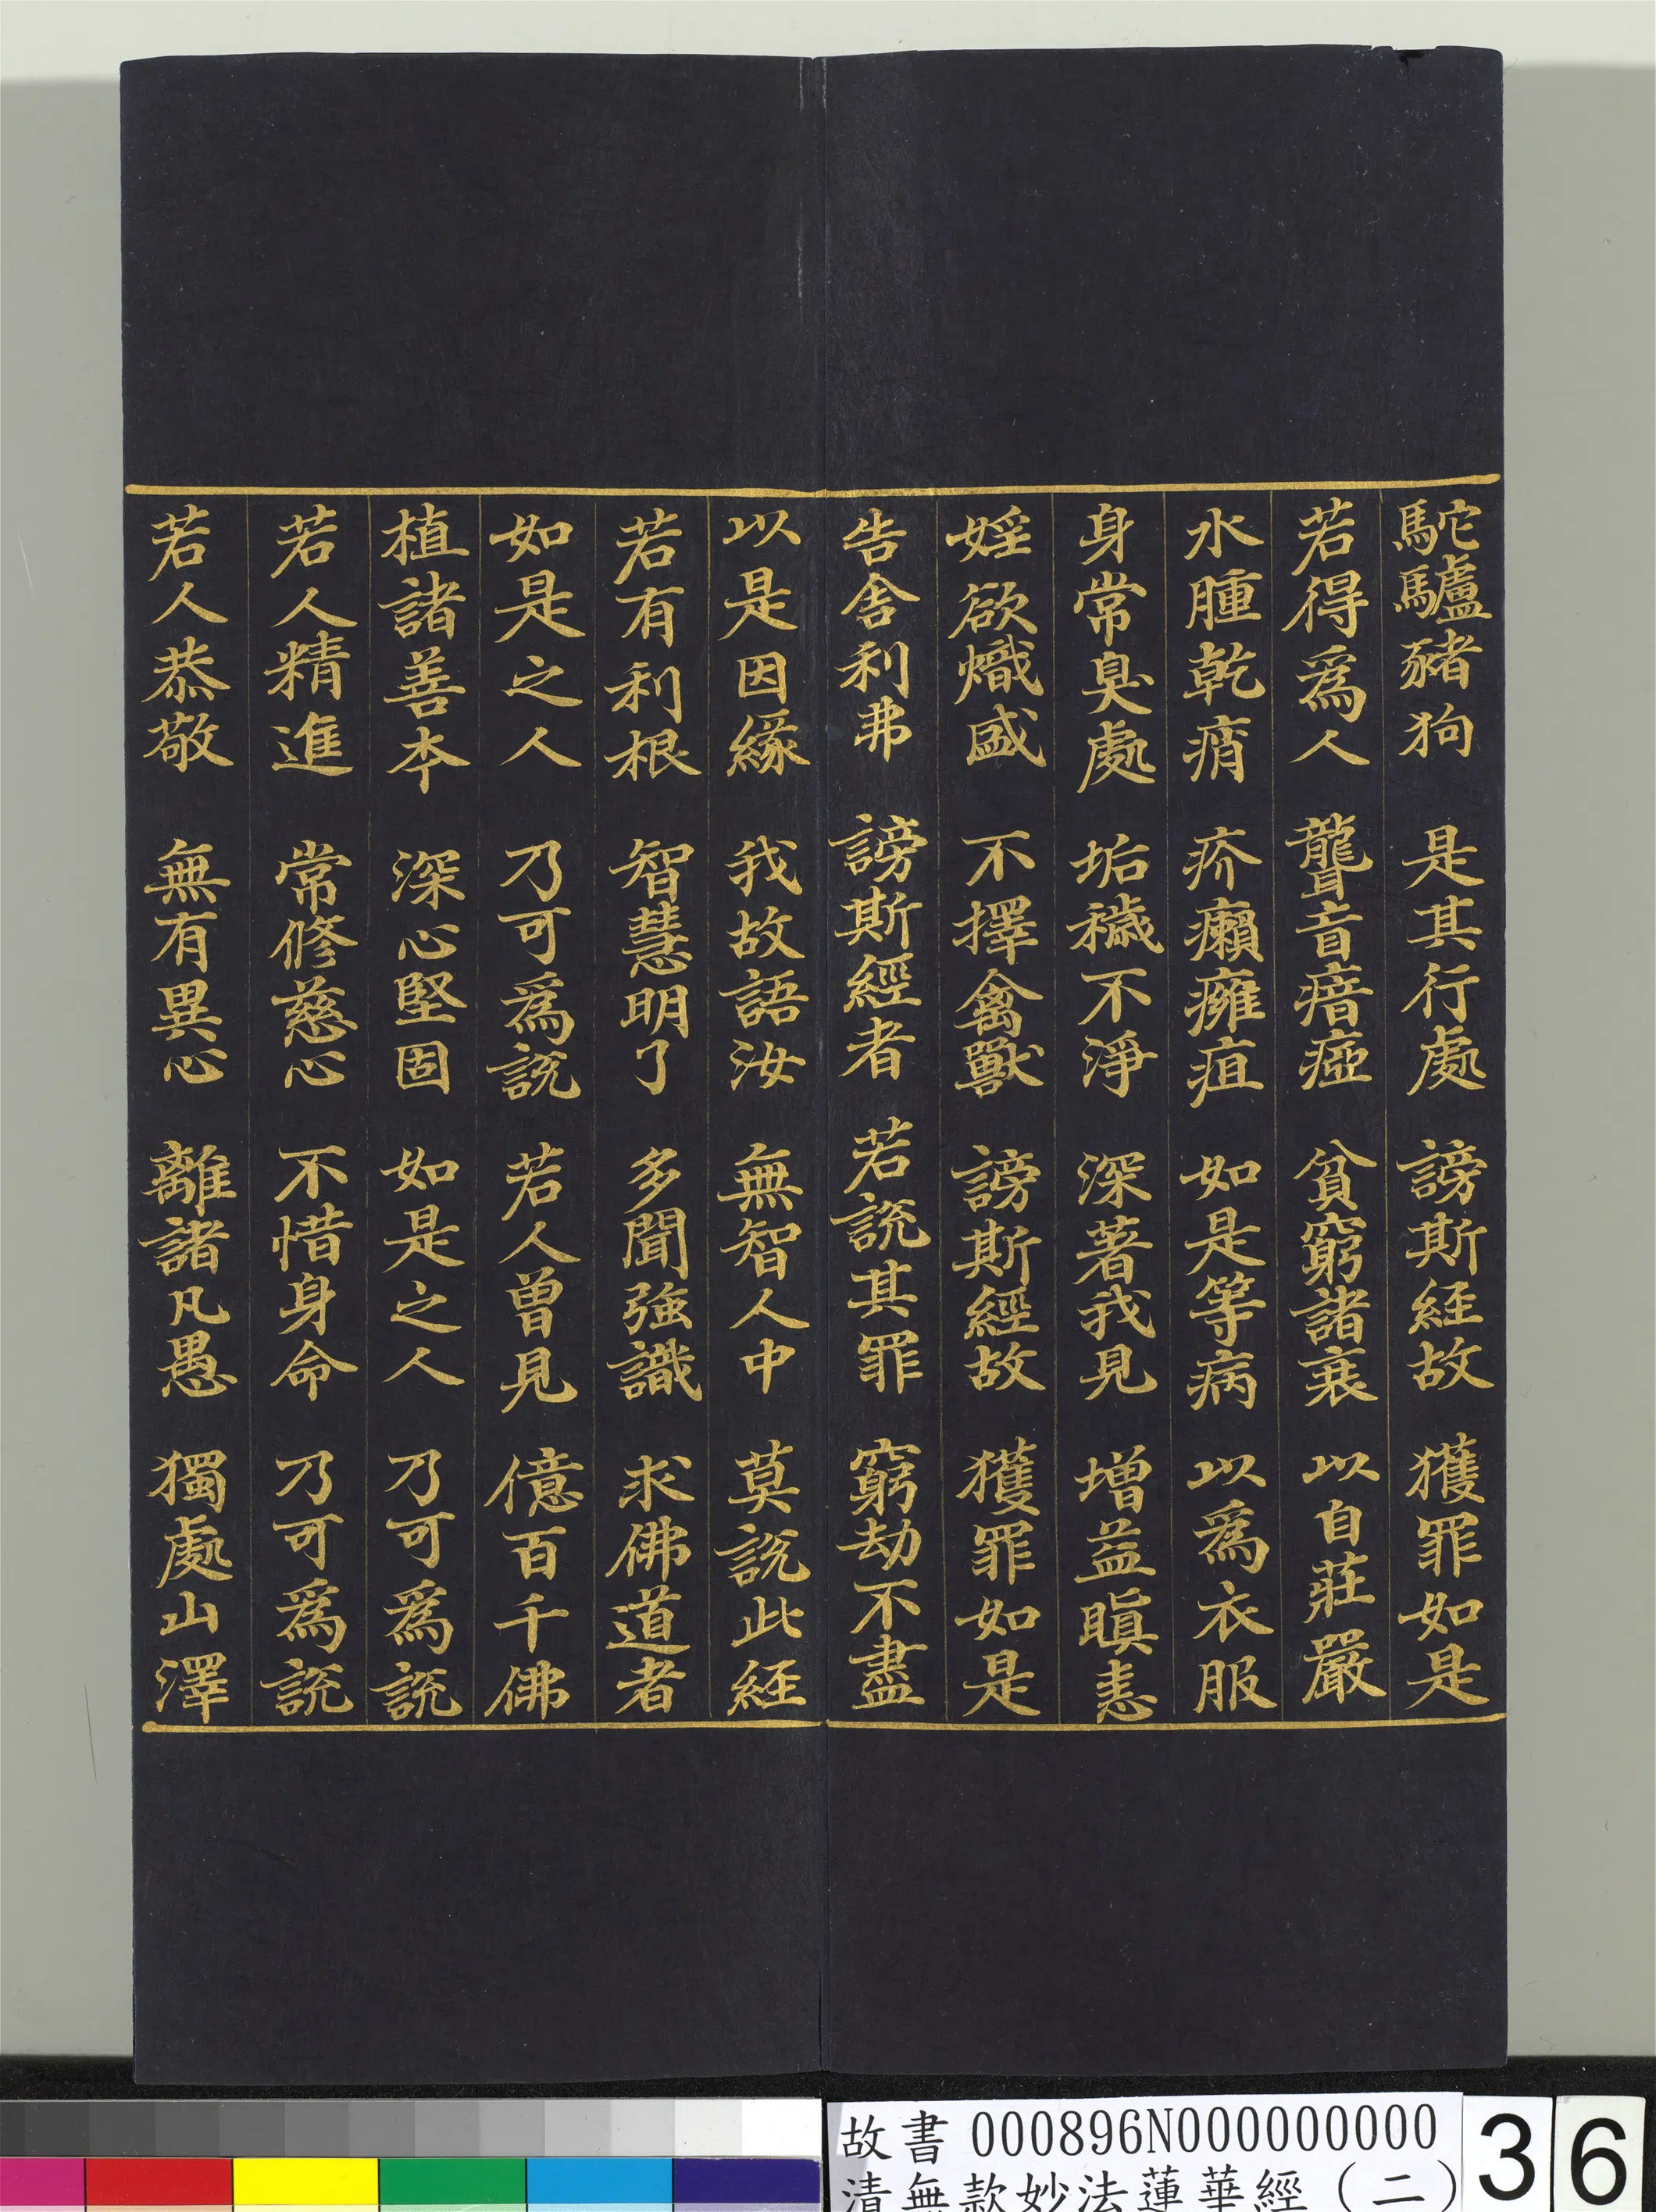 駝驢豬狗 是其行處 謗斯經故 獲罪如是
若得爲人 聾盲瘖瘂 貧窮諸衰 以自莊嚴
水腫乾痟 疥癩癰疽 如是等病 以爲衣服
身常臭處 垢穢不淨 深著我見 增益瞋恚
婬欲熾盛 不擇禽獸 謗斯經故 獲罪如是
告舍利弗 謗斯經者 若說其罪 窮劫不盡
以是因緣 我故語汝 無智人中 莫說此経
若有利根 智慧明了 多聞強識 求佛道者
如是之人 乃可爲說 若人曾見 億百千佛
植諸善本 深心堅固 如是之人 乃可爲說
若人精進 常修慈心 不惜身命 乃可爲說
若人恭敬 無有異心 離諸凡愚 獨處山澤
故書 000896N000000000
清無款妙法蓮華經（二）
36